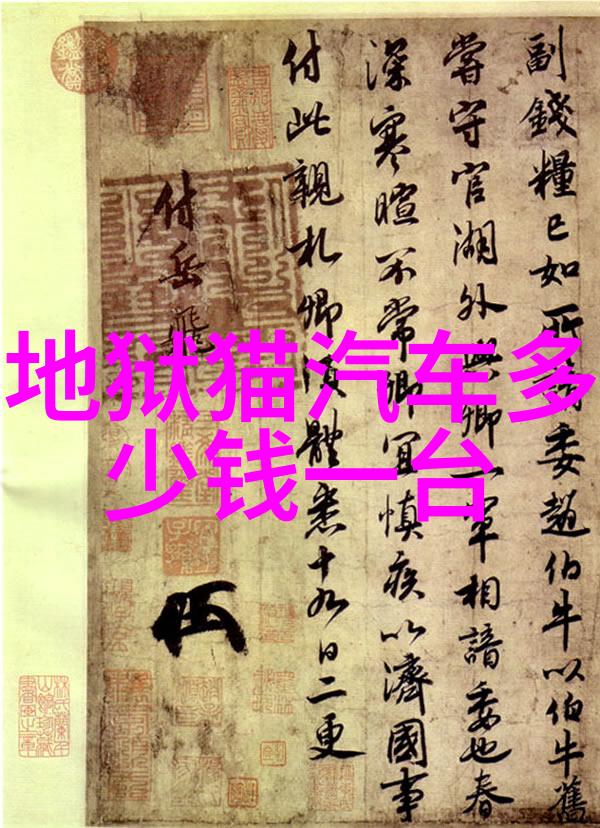 地狱猫汽车多
少钱一台
副錢糧已如所請委趙伯牛以伯牛舊
嘗守官湖外與卿一軍相諳委也春
深寒暄不常卿宜慎疾以濟國事
付此親札卿須體悉十九日二更
付岳飛